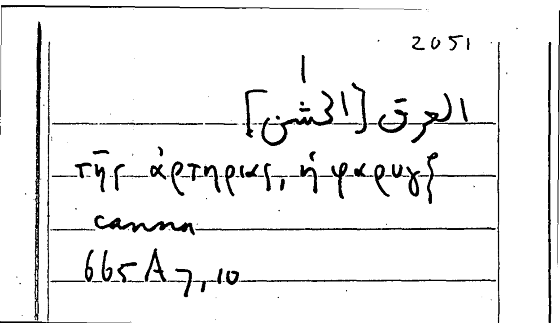 2051
ا
العرق [الخشن]
τῆς ἀρτηρίας, ἡ φάρυγξ
canna
665 A 7, 10